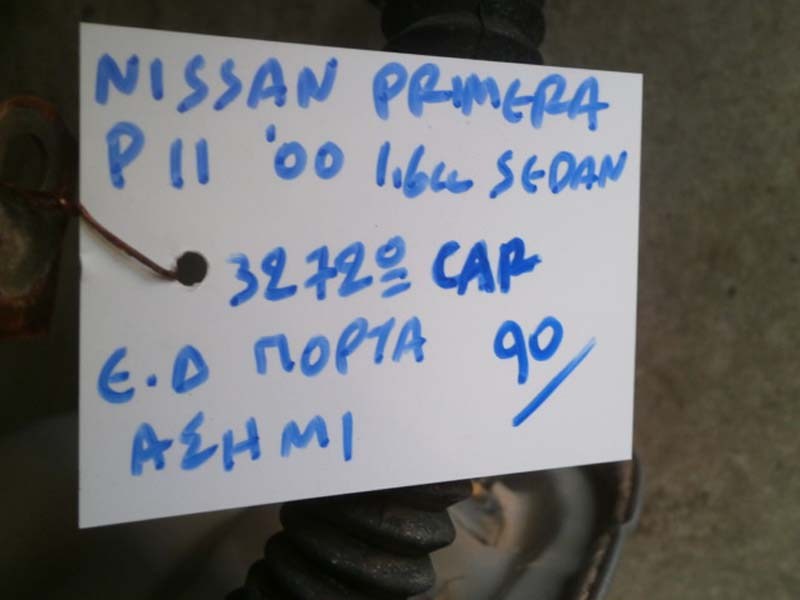 NISSAN PRIMERA
P11 '00 1.6cc SEDAN
3272º CAR
Ε.Δ ΠΟΡΤΑ 90/
ΑΣΗΜΙ